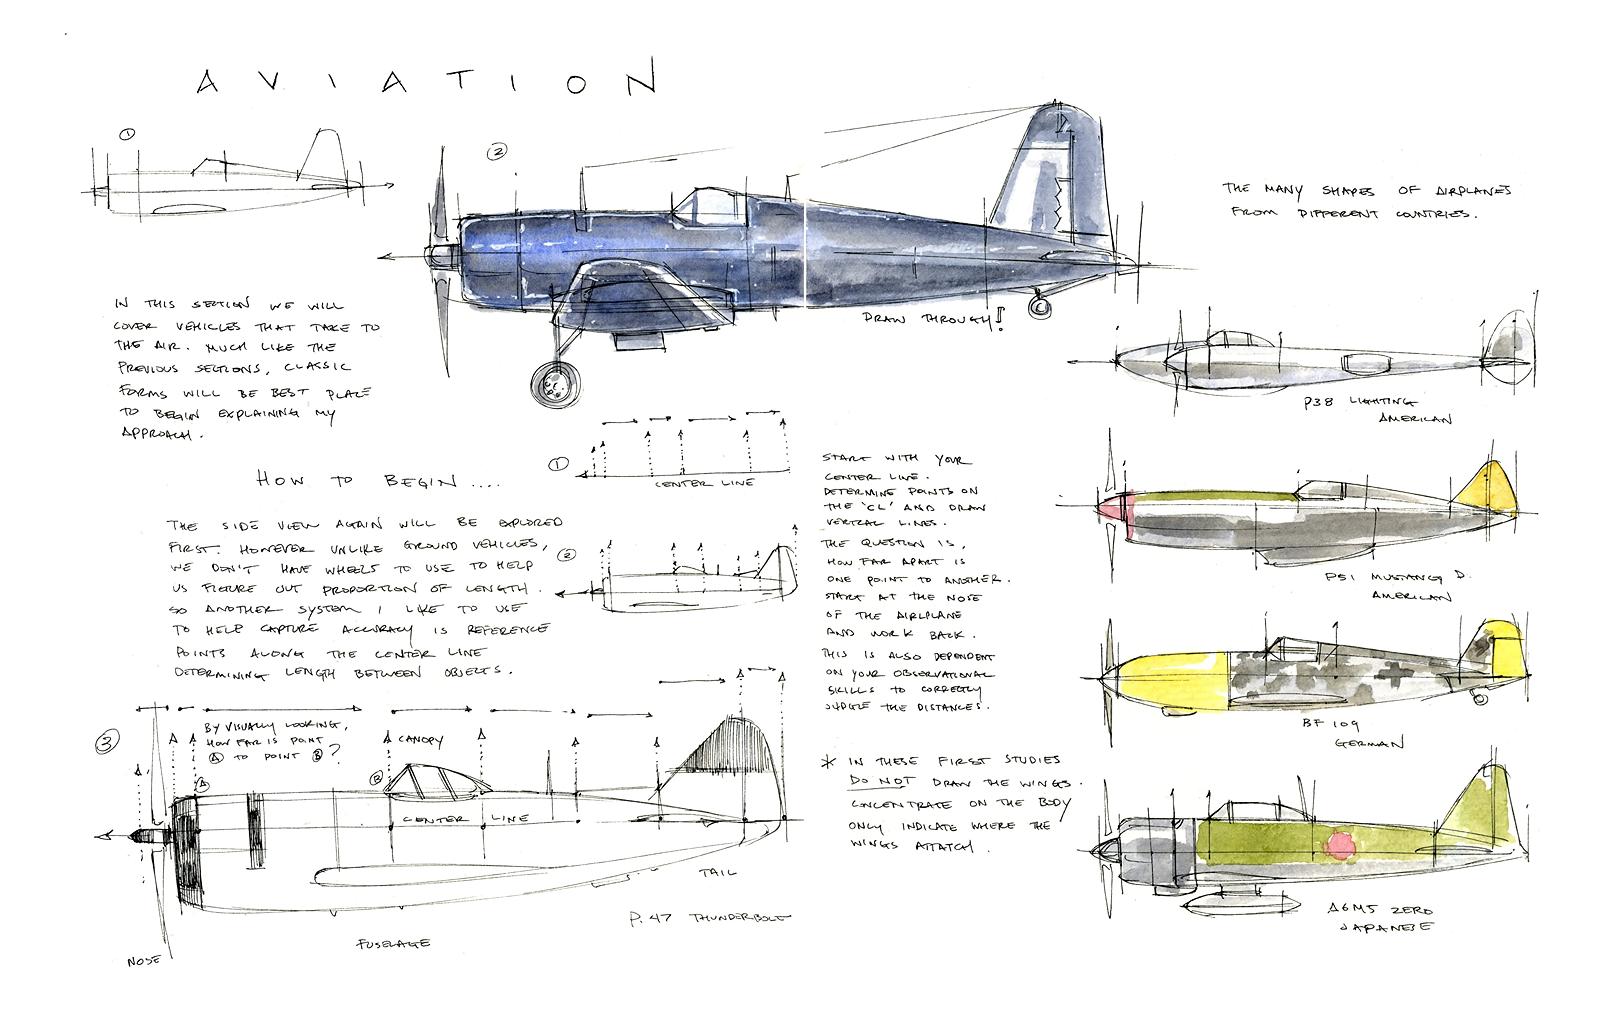 AVIATION
1
2
THE MANY SHAPES OF AIRPLANES
FROM DIFFERENT COUNTRIES.
IN THIS SECTION WE WILL
COVER VEHICLES THAT TAKE TO
THE AIR. MUCH LIKE THE
PREVIOUS SECTIONS, CLASSIC
FORMS WILL BE BEST PLACE
TO BEGIN EXPLAINING MY
APPROACH.
DRAW THROUGH!
HOW TO BEGIN....
THE SIDE VIEW AGAIN WILL BE EXPLORED
FIRST. HOWEVER UNLIKE GROUND VEHICLES,
WE DON'T HAVE WHEELS TO USE TO HELP
US FIGURE OUT PROPORTION OF LENGTH.
SO ANOTHER SYSTEM I LIKE TO USE
TO HELP CAPTURE ACCURACY IS REFERENCE
POINTS ALONG THE CENTER LINE
DETERMINING LENGTH BETWEEN OBJECTS.
1
CENTER LINE
2
START WITH YOUR
CENTER LINE.
DETERMINE POINTS ON
THE 'CL' AND DRAW
VERTICAL LINES.
THE QUESTION IS,
HOW FAR APART IS
ONE POINT TO ANOTHER.
START AT THE NOSE
OF THE AIRPLANE
AND WORK BACK.
THIS IS ALSO DEPENDENT
ON YOUR OBSERVATIONAL
SKILLS TO CORRECTLY
JUDGE THE DISTANCES.
* IN THESE FIRST STUDIES
DO NOT DRAW THE WINGS.
CONCENTRATE ON THE BODY
ONLY INDICATE WHERE THE
WINGS ATTATCH.
3
BY VISUALLY LOOKING,
HOW FAR IS POINT
A TO POINT B?
A
B
CANOPY
CENTER LINE
TAIL
P.47 THUNDERBOLT
FUSELAGE
NOSE
P38 LIGHTING
AMERICAN
P51 MUSTANG D.
AMERICAN
BF 109
GERMAN
A6M5 ZERO
JAPANESE